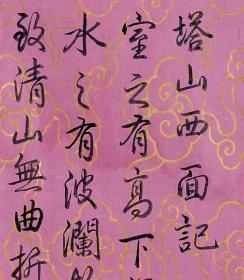 塔山西面記
室之有高下
水之有波瀾
致清山無曲折